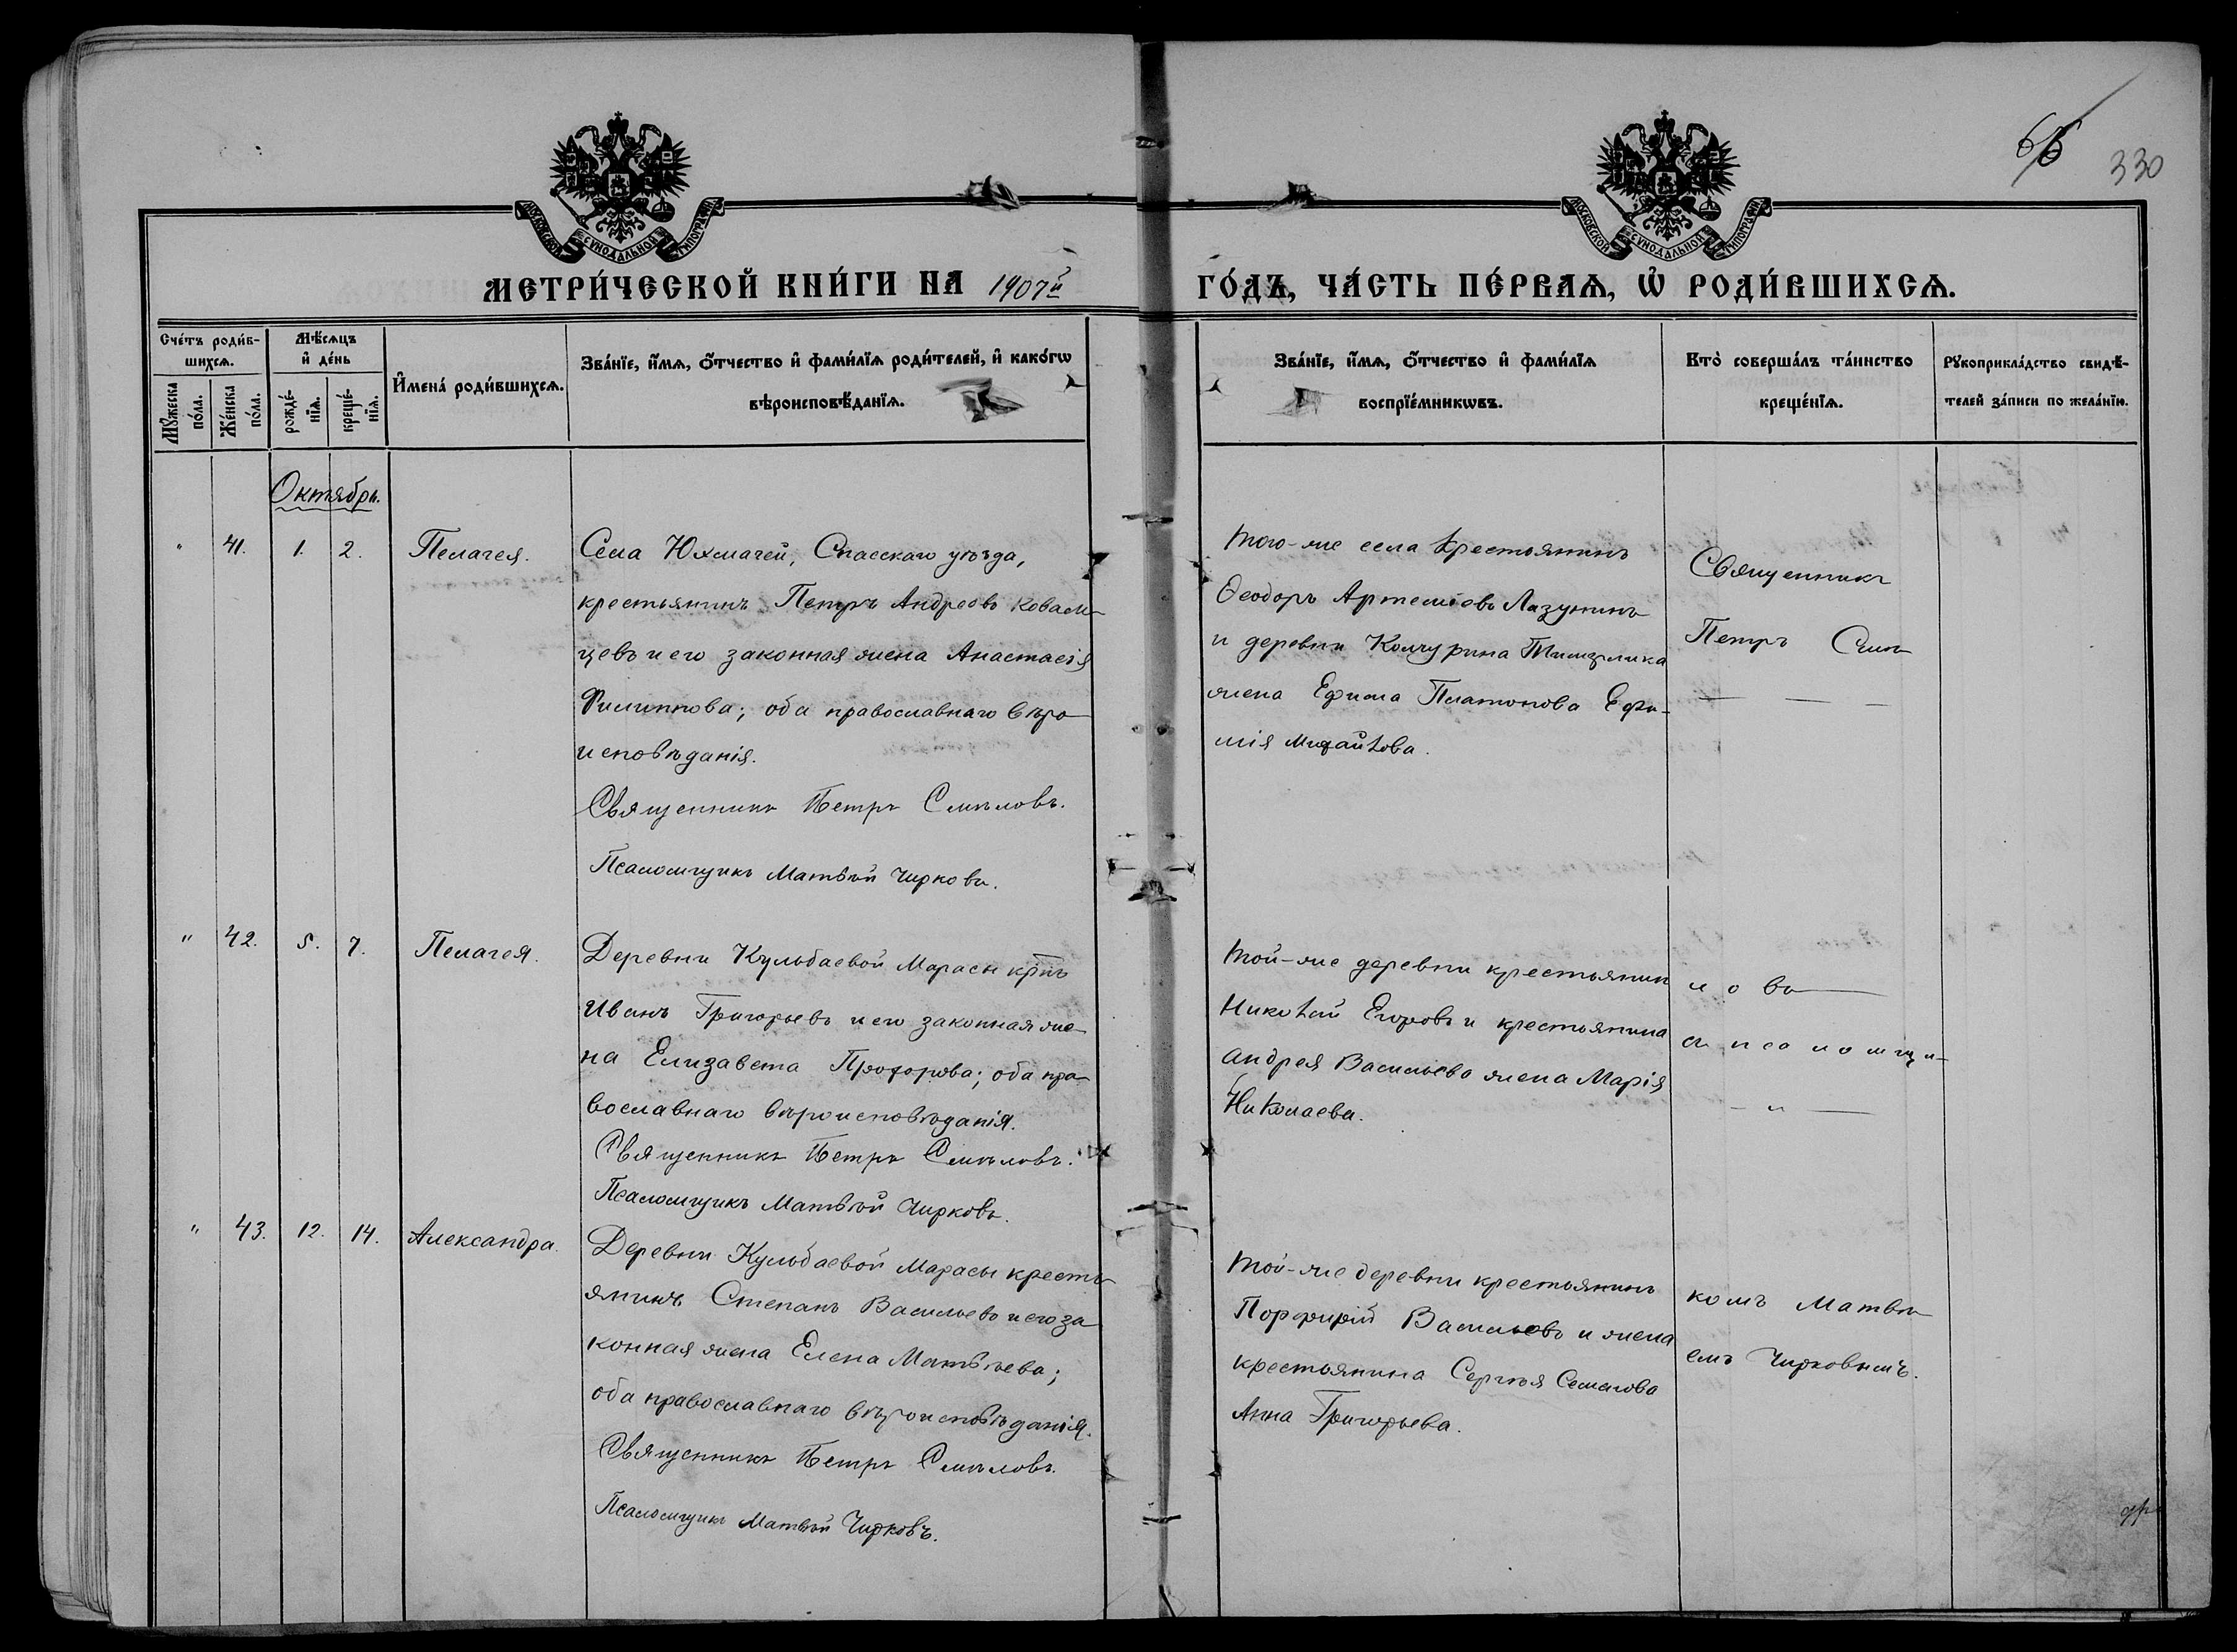 66 330
МОСКОВСКОЙ СѴНОДАЛЬНОЙ ТИПОГРАФІИ
МОСКОВСКОЙ СѴНОДАЛЬНОЙ ТИПОГРАФІИ
МЕТРИ́ЧЕСКОЙ КНИ́ГИ НА 1907й ГО́ДЪ, ЧА́СТЬ ПЕ́РВАѦ, Ѡ҆ РОДИ́ВШИХСѦ.
Сче́тъ роди́в-
шихсѧ.
Мꙋ́жеска по́ла.
Же́нска по́ла.
Мѣ́сѧцъ
и҆ де́нь
рожде́-
нїѧ.
креще́-
нїѧ.
И҆мена̀ роди́вшихсѧ.
Зва́нїе, и҆́мѧ, ѻ҆́тчество и҆ фами́лїѧ роди́телей, и҆ како́гѡ
вѣроисповѣ́данїѧ.
Зва́нїе, и҆́мѧ, ѻ҆́тчество и҆ фами́лїѧ
воспрїе́мникѡвъ.
Кто̀ соверша́лъ та́инство
креще́нїѧ.
Рꙋкоприкла́дство свидѣ́-
телей за́писи по жела́нїю.
Октябрь.
" 41. 1. 2. Пелагея.
Села Юхмачей, Спасскаго уѣзда,
крестьянинъ Петръ Андреевъ Ковали-
цевъ и его законная жена Анастасія
Филиппова; оба православнаго вѣро-
исповѣданія.
Священникъ Петръ Смѣловъ.
Псаломщикъ Матвѣй Чирковъ.
Того-же села крестьянинъ
Ѳеодоръ Артеміевъ Лазунинъ
и деревни
жена Ефима Платонова Ефи-
мія Михайлова.
Священникъ
Петръ Смѣ-
" 42. 5. 7. Пелагея.
Деревни Кульбаевой Марасы крнъ
Иванъ Григорьевъ и его законная же-
на Елизавета Прохорова; оба пра-
вославнаго вѣроисповѣданія.
Священникъ Петръ Смѣловъ.
Псаломщикъ Матвѣй Чирковъ.
Той-же деревни крестьянин
Николай Егоровъ и крестьянина
Андрея Васильева жена Марія
Николаева.
ловъ
съ псаломщи-
" 43. 12. 14. Александра.
Деревни Кульбаевой Марасы кресть-
янинъ Степанъ Васильевъ и его за-
конная жена Елена Матвѣева;
оба православнаго вѣроисповѣданія.
Священникъ Петръ Смѣловъ.
Псаломщикъ Матвѣй Чирковъ.
Той-же деревни крестьянинъ
Порфирій Васильевъ и жена
крестьянина Сергѣя Семенова
Анна Григорьева.
комъ Матвѣ-
емъ Чирковымъ.